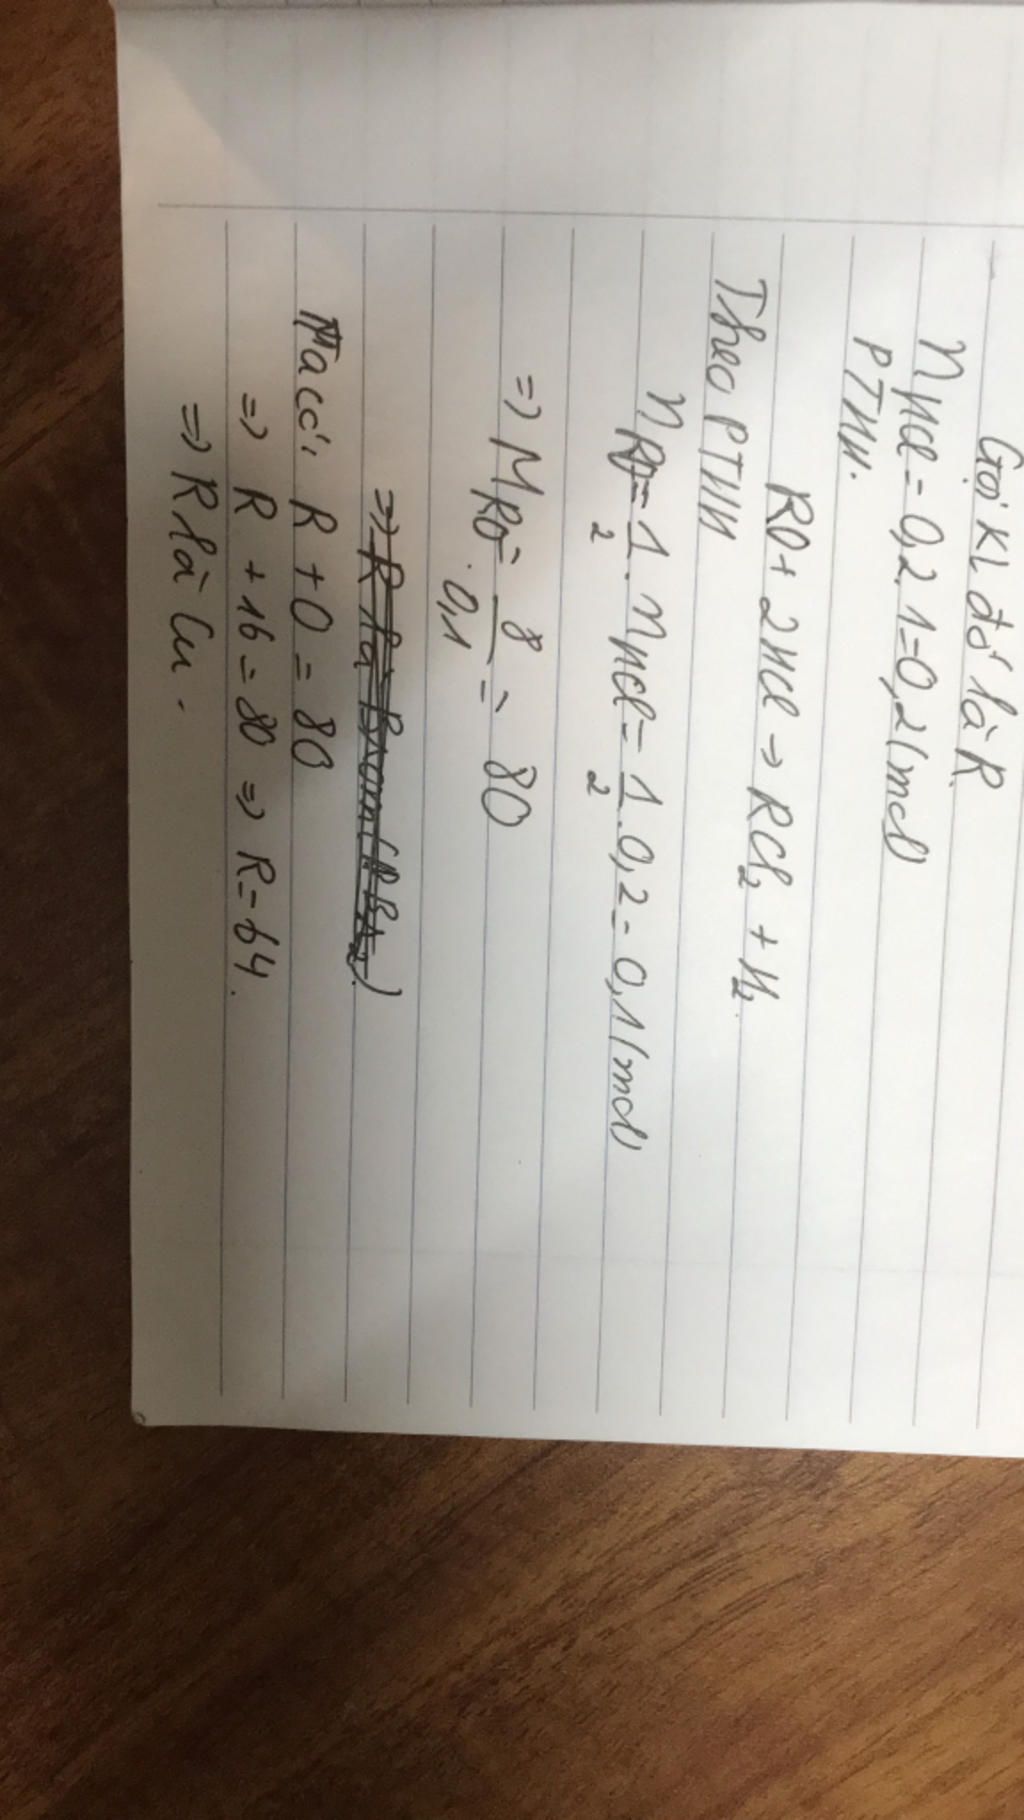 Gọi KL đó là R
nHCl = 0,2.1 = 0,2 (mol)
PTHH:
RO + 2HCl → RCl₂ + H₂.
Theo PTHH
nRO = 1/2 . nHCl = 1/2 . 0,2 = 0,1 (mol)
=> MRO = 8/0,1 = 80
=> R là Brom (Br₂)
Ta có: R + O = 80
=> R + 16 = 80 => R = 64.
=> R là Cu.